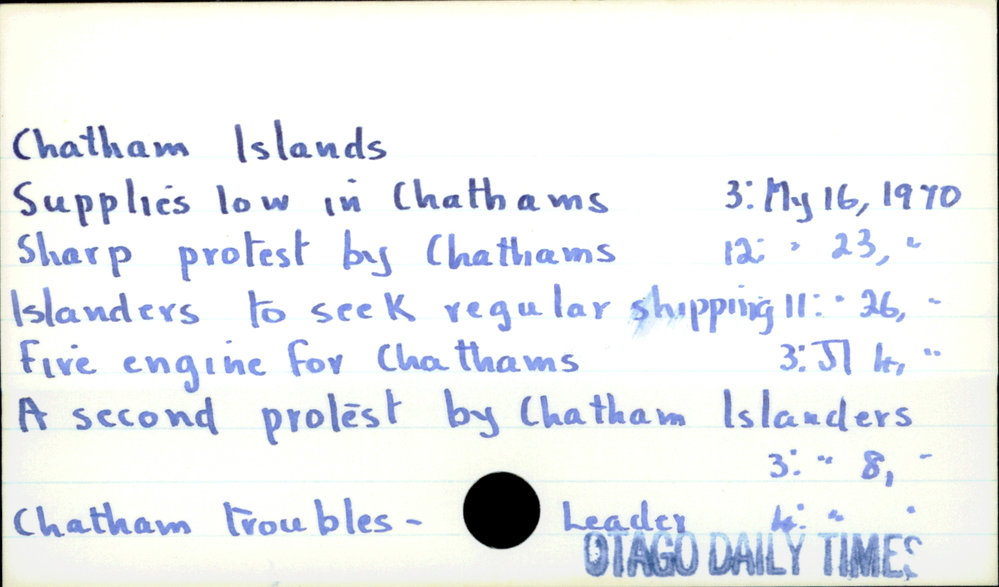 Chatham Islands
Supplies low in Chathams 3: My 16, 1970
Sharp protest by Chathams 12: " 23, "
Islanders to seek regular shipping 11: " 26, "
Fire engine for Chathams 3: Jl 4, "
A second protest by Chatham Islanders
3: " 8, "
Chatham troubles - Leader 4: " "
OTAGO DAILY TIMES